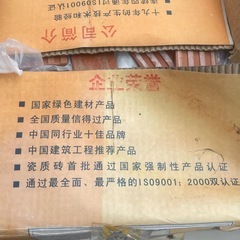 公司简介
十九年的生产技术和经验
连续四年通过ISO9001认证
企业荣誉
■ 国家绿色建材产品
■ 全国质量信得过产品
■ 中国同行业十佳品牌
■ 中国建筑工程推荐产品
■ 瓷质砖首批通过国家强制性产品认证
■ 通过最全面、最严格的ISO9001：2000双认证